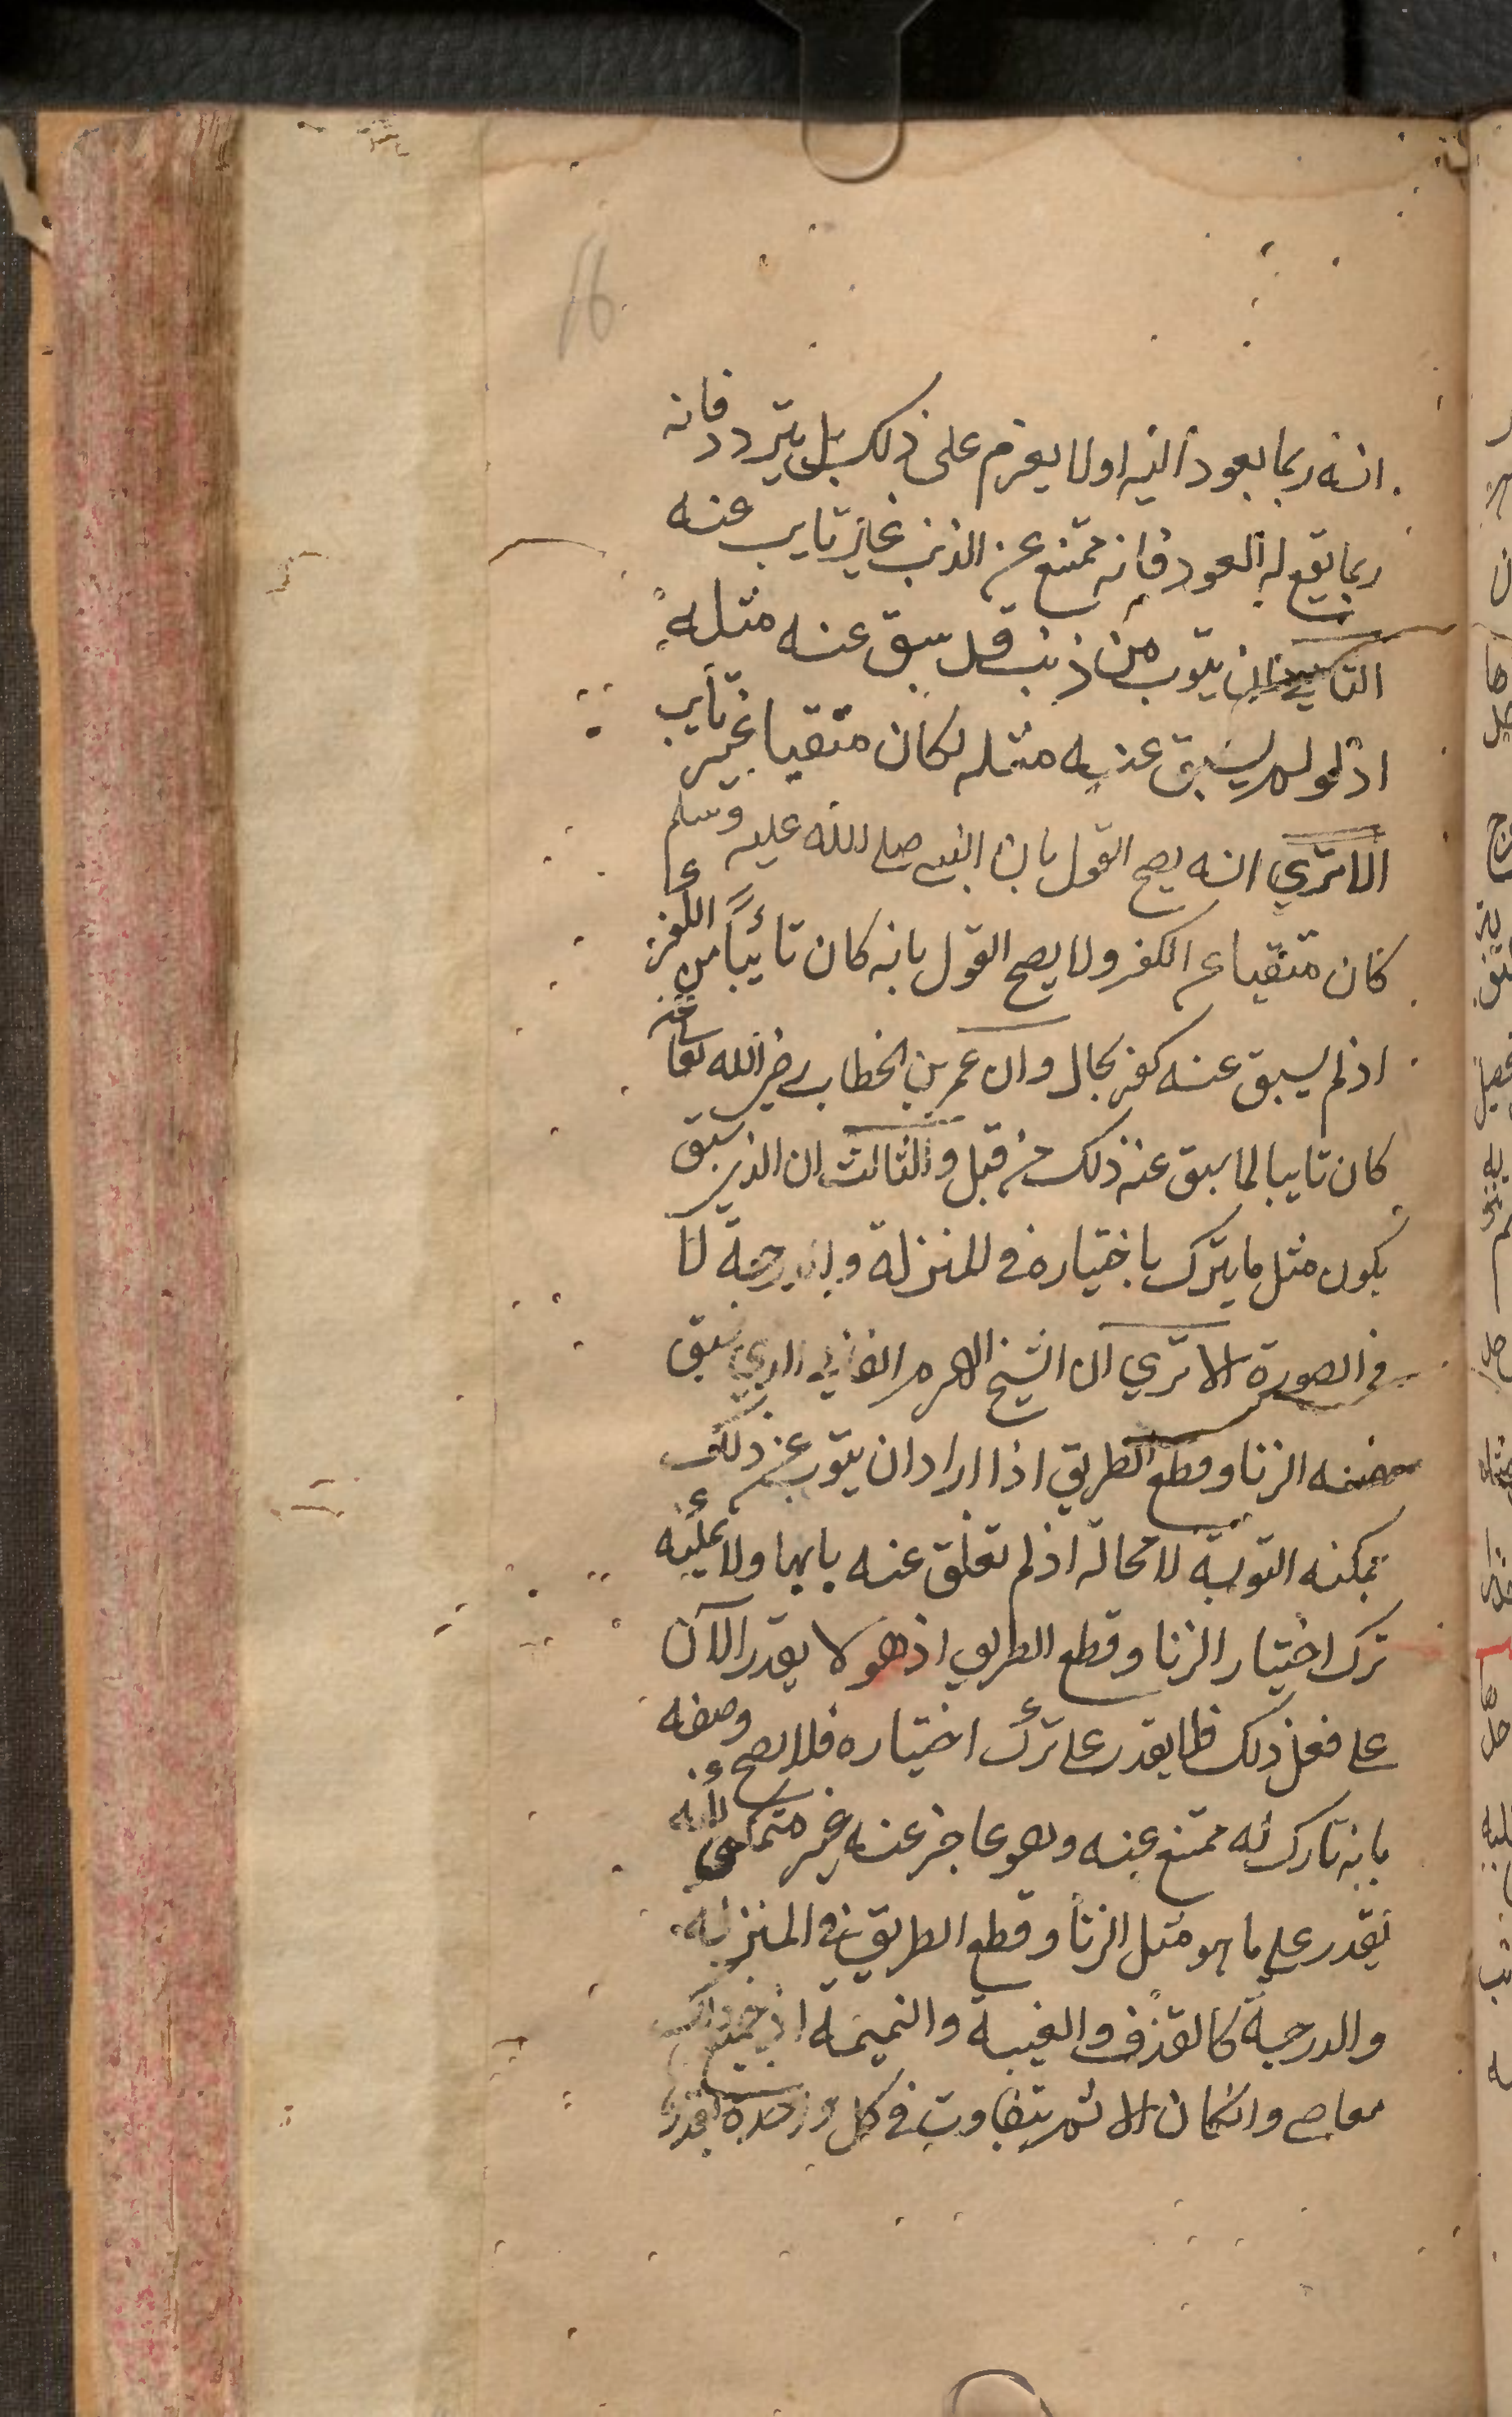 انه ربما يعود اليه اولا يعزم على ذلك بل يتردد فانه
ربما يقع له العود فانه ممتنع عن الذنب غير تايب عنه
الثاني ان يتوب من ذنب قد سبق عنه مثله
اذ لو لم يسبق عنه مثله لكان متقيا غير تايب
الا تري انه يصح القول بان النبي صلى الله عليه وسلم
كان متقيا عن الكفر ولا يصح القول بانه كان تائبا من الكفر
اذ لم يسبق عنه كفر بحال وان عمر بن الخطاب رضي الله تعا عنه
كان تايبا لما سبق عنه ذلك من قبل والثالث ان الذي سبق
يكون مثل ما يترك باختياره في المنزلة والدرجة لا
في الصورة الا تري ان الشيخ الهرم الفاني الذي سبق
منه الزنا وقطع الطريق اذا اراد ان يتوب عن ذلك
تمكنه التوبة لا محالة اذ لم تغلق عنه بابها ولا يمكنه
ترك اختيار الزنا وقطع الطريق اذ هو لا يقدر الآن
على فعل ذلك فلا يقدر على ترك اختياره فلا يصح وصفه
بانه تارك له ممتنع عنه وهو عاجز عنه غير متمكن لانه
يقدر على ما هو مثل الزنا وقطع الطريق في المنزلة
والدرجة كالقذف والغيبة والنميمة اذ جميع ذلك
معاصي وانكان الاثم يتفاوت في كل واحدة بقدرها